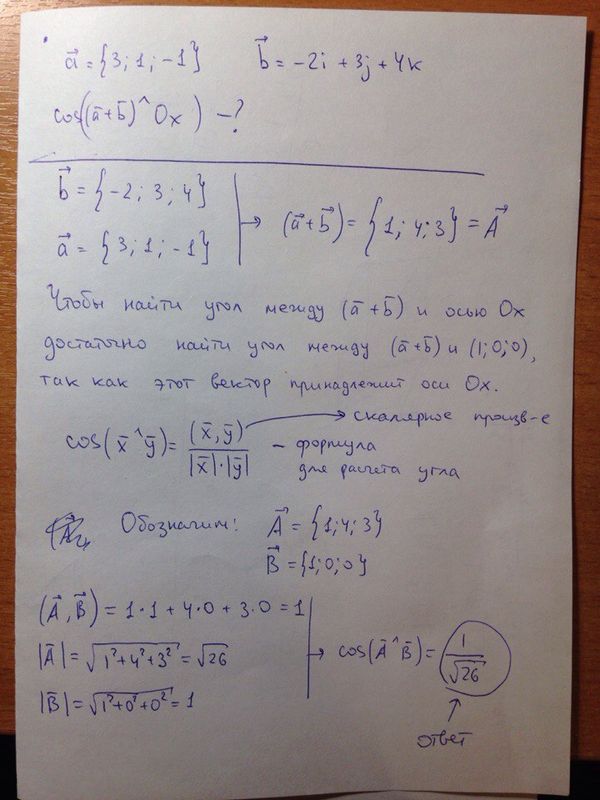 a⃗ = {3; 1; -1}   b⃗ = -2i + 3j + 4k
cos((a̅+b̅)^Ox) - ?
b⃗ = {-2; 3; 4}
a⃗ = {3; 1; -1}
→ (a⃗+b⃗) = {1; 4; 3} = A⃗
Чтобы найти угол между (a̅+b̅) и осью Ox
достаточно найти угол между (a̅+b̅) и (1; 0; 0),
так как этот вектор принадлежит оси Ox.
cos(x̅^y̅) = (x̅, y̅) / |x̅|·|y̅| → скалярное произв-е
- формула
для расчета угла
Обозначим: A⃗ = {1; 4; 3}
B⃗ = {1; 0; 0}
(A⃗, B⃗) = 1·1 + 4·0 + 3·0 = 1
|A̅| = √(1²+4²+3²) = √26
|B̅| = √(1²+0²+0²) = 1
→ cos(A̅^B̅) = 1/√26
ответ